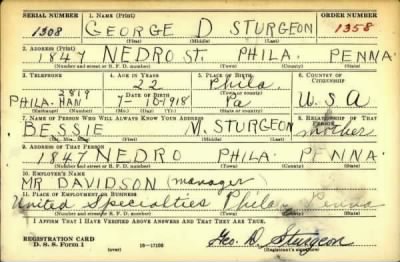 SERIAL NUMBER 1. NAME (Print) ORDER NUMBER
1308 GEORGE D STURGEON 1358
(First) (Middle) (Last)
2. ADDRESS (Print)
1847 NEDRO ST. PHILA. PENNA
(Number and street or R. F. D. number) (Town) (County) (State)
3. TELEPHONE 4. AGE IN YEARS 5. PLACE OF BIRTH 6. COUNTRY OF CITIZENSHIP
2819 22 Phila.
DATE OF BIRTH (Town or county)
PHILA. HAN 7-16-1918 Pa U.S.A
(Exchange) (Number) (Mo.) (Day) (Yr.) (State or country)
7. NAME OF PERSON WHO WILL ALWAYS KNOW YOUR ADDRESS 8. RELATIONSHIP OF THAT PERSON
BESSIE M. STURGEON mother
(Mr., Mrs., Miss) (First) (Middle) (Last)
9. ADDRESS OF THAT PERSON
1847 NEDRO PHILA. PENNA
(Number and street or R. F. D. number) (Town) (County) (State)
10. EMPLOYER'S NAME
MR DAVIDSON (manager)
11. PLACE OF EMPLOYMENT OR BUSINESS
United Specialties Phila Penna
(Number and street or R. F. D. number) (Town) (County) (State)
I AFFIRM THAT I HAVE VERIFIED ABOVE ANSWERS AND THAT THEY ARE TRUE.
REGISTRATION CARD
D. S. S. Form 1 16-17105 Geo. D. Sturgeon
(Registrant's signature)